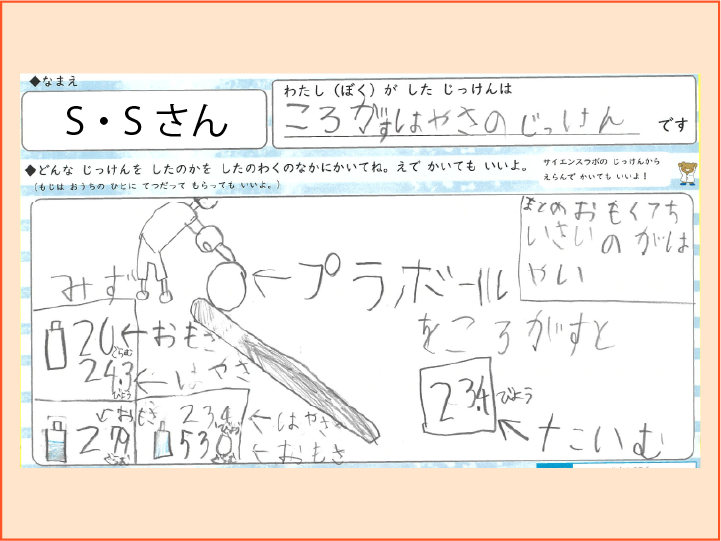 ◆なまえ
S・Sさん
わたし（ぼく）が した じっけんは
ころがすはやさのじっけん です
◆どんな じっけんを したのかを したのわくのなかにかいてね。えで かいても いいよ。
（もじは おうちの ひとに てつだって もらっても いいよ。）
サイエンスラボの じっけんから
えらんで かいても いいよ！
まとめ おもくて ち
いさい の がは
やい
みず
←プラボール
をころがすと
20 ぐらむ ←おもさ
24.3 びょう ←はやさ
↙おもさ
279 ぐらむ
23.4 びょう ←はやさ
530 ぐらむ ←おもさ
23.4 びょう
↖たいむ